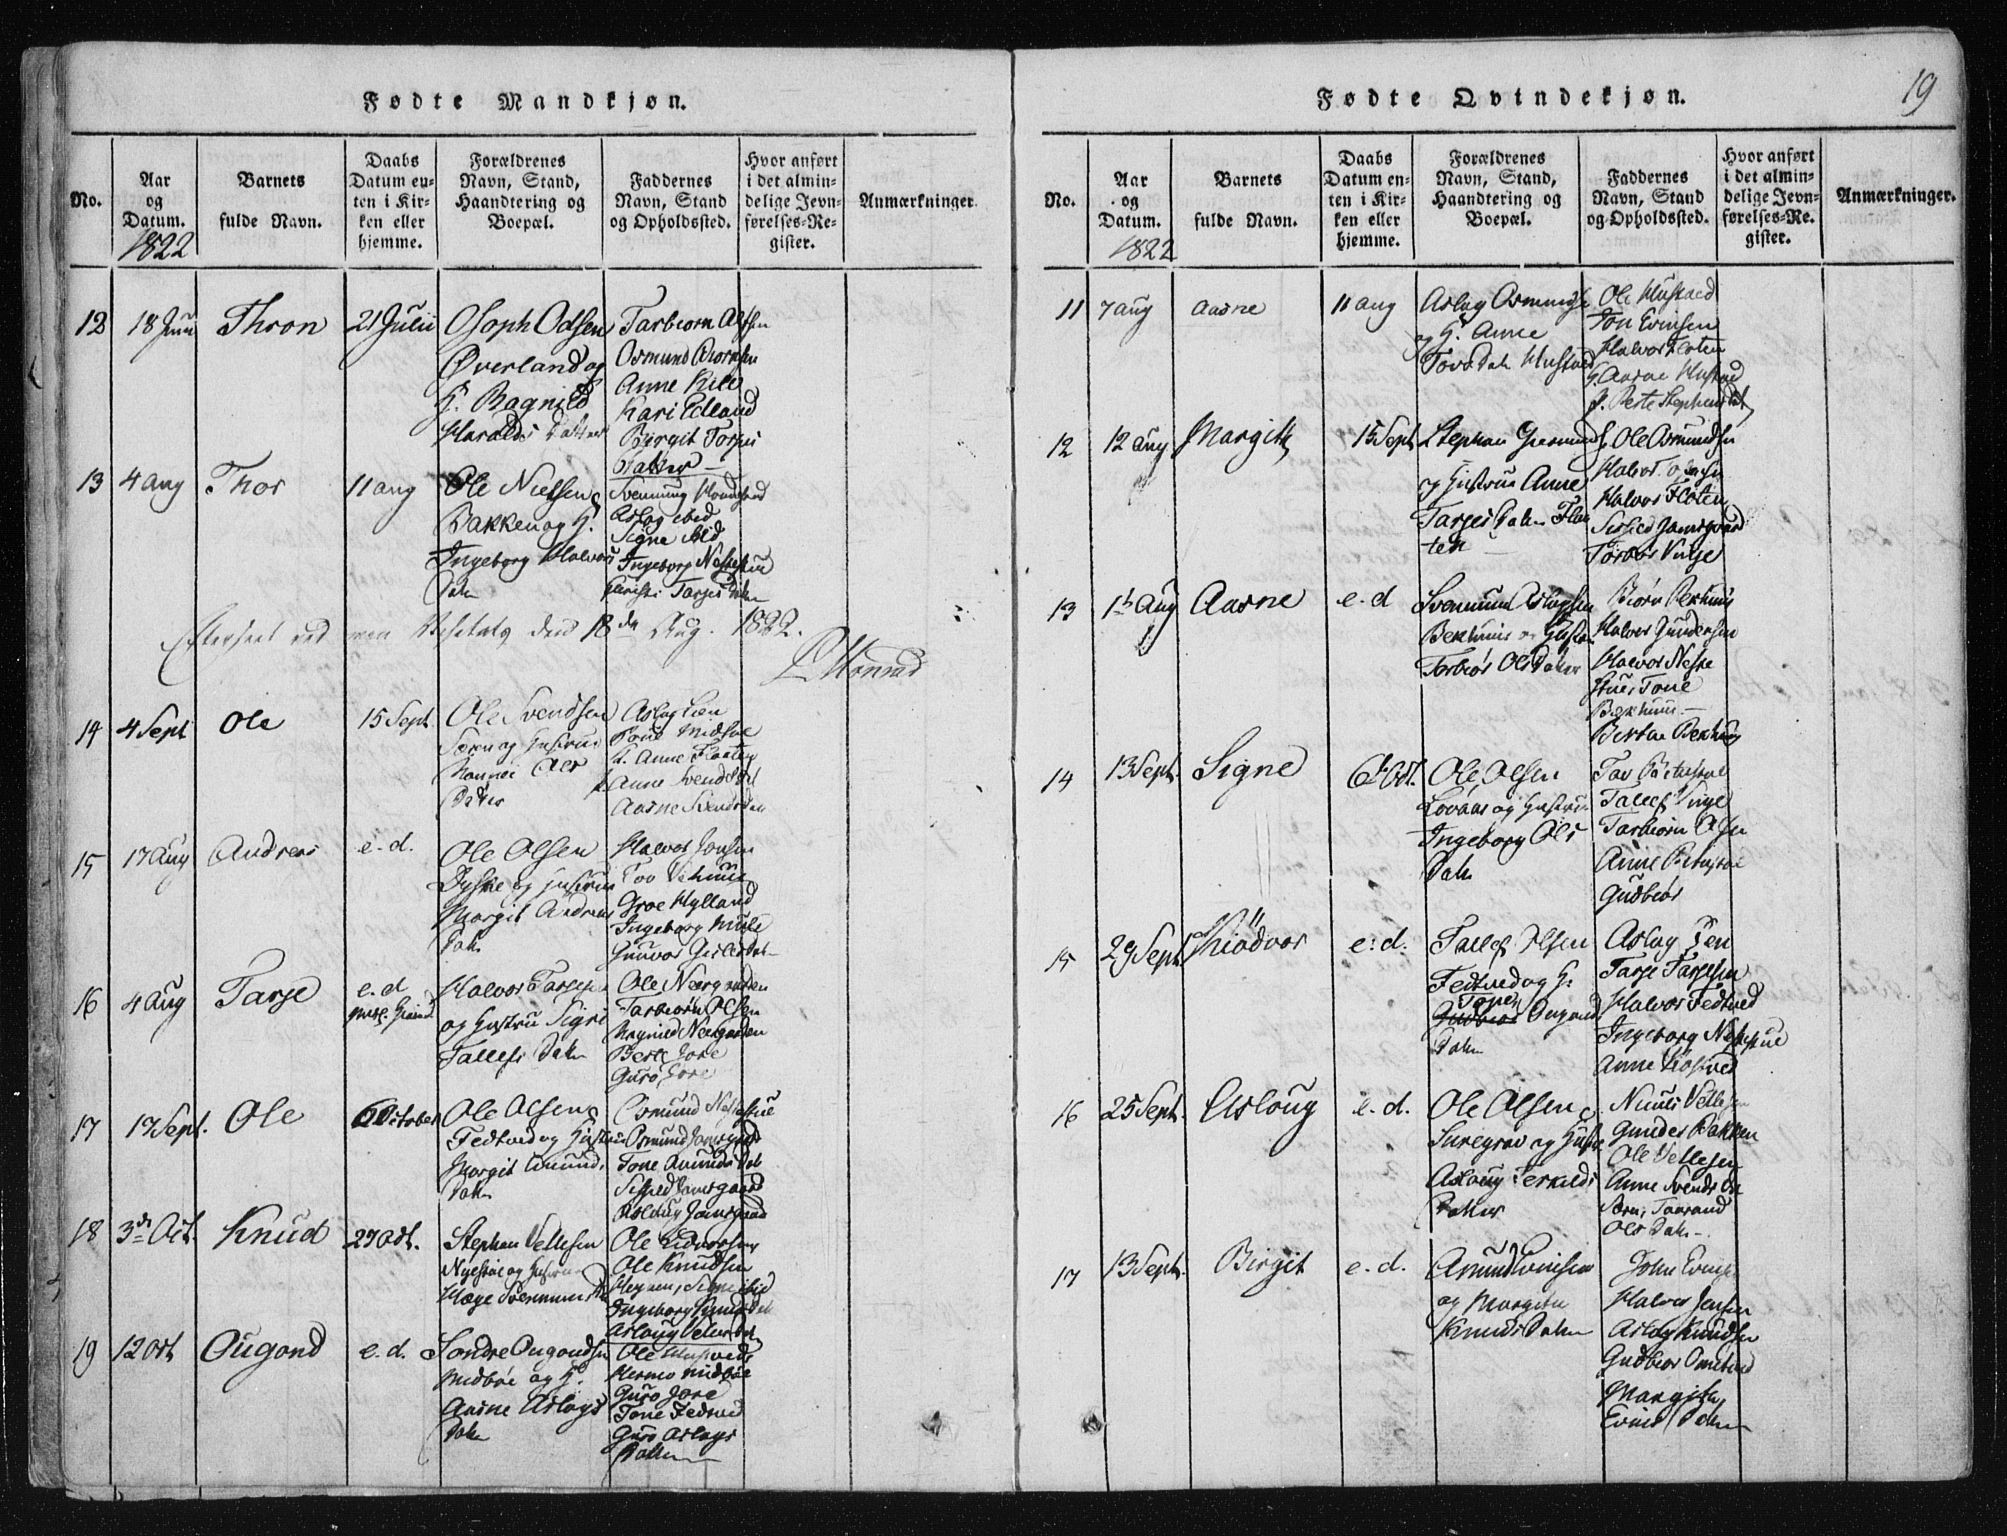 Fødte Mandkjøn.
No.
Aar
og
Datum.
1822
Barnets
fulde Navn.
Daabs
Datum en-
ten i Kir-
ken eller
hjemme.
Forældrenes
Navn, Stand,
Haandtering og
Boepæl.
Faddernes
Navn, Stand
og Opholdssted.
Hvor anført
i det almin-
delige Jevn-
førelses-Re-
gister.
Anmærkninger.
12 18 Juni Thron 21 Julii
Osoph Odsen
Øverland og
H. Ragnild
Haralds Datter
Tarbiorn Olsen
Osmund Biornsen
Anne Kile
Kari Edland
Birgit Torjus
Datter
13 4 aug Thor 11 aug
Ole Nielsen
Bakken og H.
Ingeborg Halvors
Datr
Svennung
Aslog ibid
Signe ibid
Ingeborg Nestestue
Tarjes Datr
Efterseet ved min Visitatz den 18de Aug. 1822.
Monrad
14 4 Sept Ole 15 Sept.
Ole Svendsen
og Hustrue
Ols
Datter
Aslag Lien
Anne Flaaten
Anne Svendsdat
Aasne Svendsdat
15 17 Aug Andreas e. d.
Ole Olsen
Dyskе og Hustrue
Margit Andreas
Datr
Halvor Jonsen
Tov Vehuus
Groe Hylland
Ingeborg Mule
Gunvor
16 4 Aug Tarje e. d
Halvor Tarjesen
og Hustru Sigri
Tallefs Datr
Ole Neergarden
Tarbiorn Olsen
Ragnild Neergarden
Berte Jore
Guro Jore
17 17 Sept. Ole 6 October
Ole Olsen
Fedtved og Hustrue
Margit Amunds
Datr
Osmund Nestestue
Osmund Jamsgaard
Tone Amunds Dat
Sigrid Jamsgaard
Aslaug Jamsgaard
18 3de Oct. Knud 27 Oct.
Stephan Vellesen
Nyestøe og Hustrue
Hæge Svennungs D
Ole
Ole Knudsen
Signe ibid
Ingeborg Knuds Dat
Aslaug Velles Dat
19 12 Oct Ougond e. d.
Sondre Ougondsen
Midbøe og H.
Aasne Aslags
Datr
Ole
Midbøe
Guro Jore
Tone Fedtved
Guro Aslags
Datter
Fødte Qvindekjøn.
19
No.
Aar
og
Datum.
1822
Barnets
fulde Navn.
Daabs
Datum en-
ten i Kir-
ken eller
hjemme.
Forældrenes
Navn, Stand,
Haandtering og
Boepæl.
Faddernes
Navn, Stand
og Opholdssted.
Hvor anført
i det almin-
delige Jevn-
førelses-Re-
gister.
Anmærkninger.
11 7 aug Aasne 11 aug
Aslag Osmunds
og H. Anne
Tovs Datr Mustad
Ole Mustaed
Jon Evinsen
Halvor Floten
H. Aasne Mustad
P. Berte Stephensdat
12 12 aug Margith 15 Sept
Stephan Giermunds.
og Hustrue Anne
Tarjes Datr Flaa
ten
Ole Osmundsen
Halvor Olsen
Halvor Floten
Sislied Jamsgaard
Torbor Vinje
13 15 Aug Aasne e. d
Svennund Aslagsen
Bekhuus og Hustrue
Torbiør Ols Datter
Biørn Bekhuus
Halvor Gundersen
Halvor Neste
stue, Tone
Bekhuus
Birthe Bekhuus
14 13 Sept. Signe 6 Oct.
Ole Olsen
Lovaas og Hustrue
Ingeborg Ols
Datr
Tov
Tallef Vinje
Tarbiorn Olsen
Anne
Gudbiør
15 29 Sept. Kiødvor e. d.
Tallef Olsen
Fedtved og H.
Tone
Gudbiør Ougonds
Datr
Aslag Lien
Tarje Tarjesen
Halvor Fedtved
Ingeborg Nestestue
Anne
16 25 Sept. Aslaug e. d.
Ole Olsen
Suregrav og Hustrue
Aslaug Terkilds
Datter
Nuuls Vellesen
Gunder Bakken
Ole Vellesen
Anne Svends Dat
Taarand
Ols Datr
17 13 Sept. Birgit e. d.
Amund Evinsen
og Margith
Knuds Datr
John Evinsen
Halvor Jensen
Aslag Knudsen
Gudbior
Margith
Evins Datr